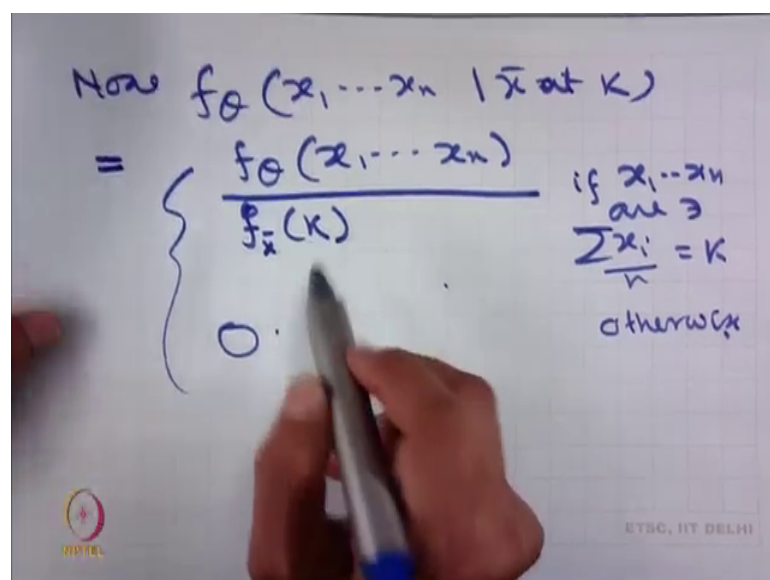 Now fθ (x₁ ... xₙ | x̄ at K)
= { fθ (x₁ ... xₙ) / f_x̄ (K) if x₁ .. xₙ
are ∋
Σxᵢ/n = K
0 otherwise
NPTEL
ETSC, IIT DELHI